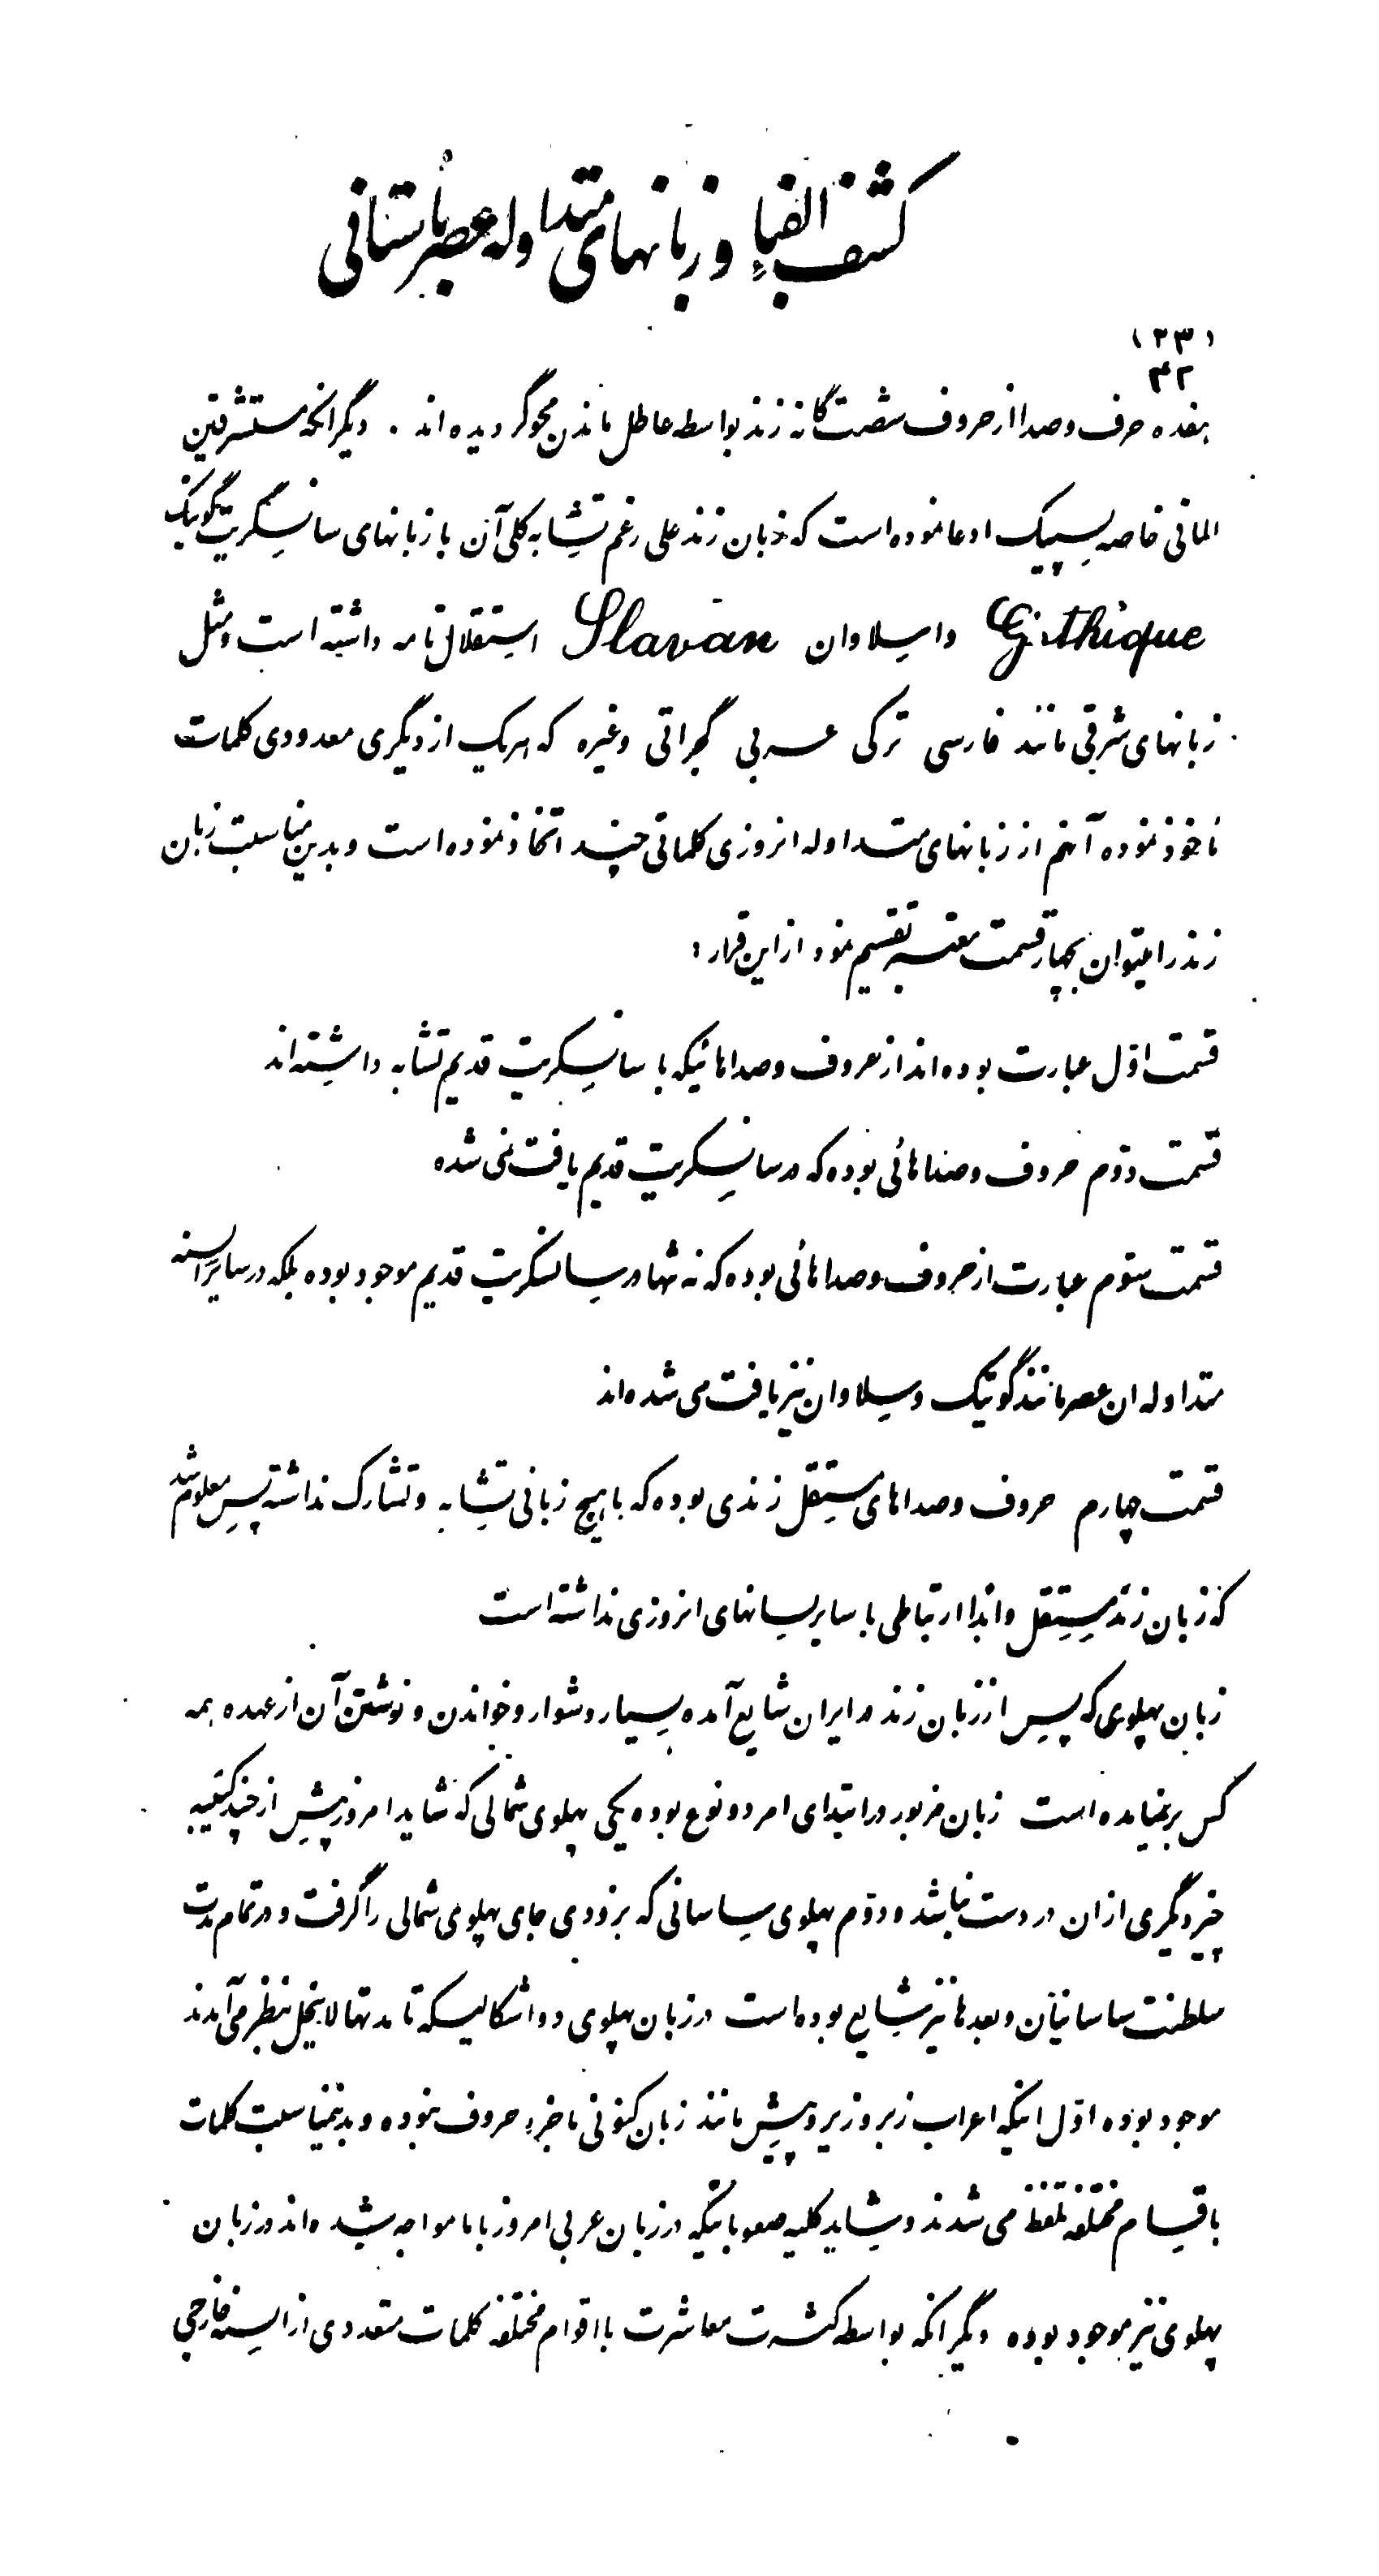 کشف الفباء و زبانهای متداوله عصر باستانی
(۲۳)
۴۲
هفده حرف و صدا از حروف شصت گانه زند بواسطه عاطل ماندن محو گردیده اند . دیگر آنکه مستشرقین
المانی خاصه سپیک ادعا نموده است که زبان زند علی رغم تشابه کلی آن با زبانهای سانسکریت گوتیک
Gothique و اسلاوان Slavan استقلال تامه داشته است و مثل
زبانهای شرقی مانند فارسی ترکی عربی گجراتی و غیره که هریک از دیگری معدودی کلمات
ماخوذ نموده آنهم از زبانهای متداوله انروزی کلماتی چند اتخاذ نموده است و بدین مناسبت زبان
زند را میتوان بچهار قسمت معتبر تقسیم نمود از این قرار :
قسمت اول عبارت بوده اند از حروف و صداهائیکه با سانسکریت قدیم تشابه داشته اند
قسمت دوم حروف و صداهائی بوده که در سانسکریت قدیم یافت نمی شده
قسمت سوم عبارت از حروف و صداهائی بوده که نه تنها در سانسکریت قدیم موجود بوده بلکه در سایر السنه
متداوله ان عصر مانند گوتیک و سلاوان نیز یافت می شده اند
قسمت چهارم حروف و صداهای مستقل زندی بوده که با هیچ زبانی تشابه و تشارک نداشته پس معلوم شد
که زبان زند مستقل و ابدا ارتباطی با سایر لسانهای انروزی نداشته است
زبان پهلوی که پس از زبان زند در ایران شایع آمده بسیار دشوار و خواندن و نوشتن آن از عهده همه
کس برنمیامده است زبان مزبور در ابتدای امر دو نوع بوده یکی پهلوی شمالی که شاید امروز بیش از چند کتیبه
چیز دیگری از ان در دست نباشد و دوم پهلوی ساسانی که بزودی جای پهلوی شمالی را گرفت و در تمام مدت
سلطنت ساسانیان و بعدها نیز شایع بوده است در زبان پهلوی دو اشکالیسکه تا مدتها لاینحل بنظر می آمدند
موجود بوده اول اینکه اعراب زبر و زیر و پیش مانند زبان کنونی ما جزء حروف نبوده و بدینمناسبت کلمات
باقسام مختلفه تلفظ می شدند و شاید کلیه صعوباتیکه در زبان عربی امروز با با مواجه شده اند در زبان
پهلوی نیز موجود بوده دیگر انکه بواسطه کثرت معاشرت با اقوام مختلفه کلمات متعددی از السنه خارجی